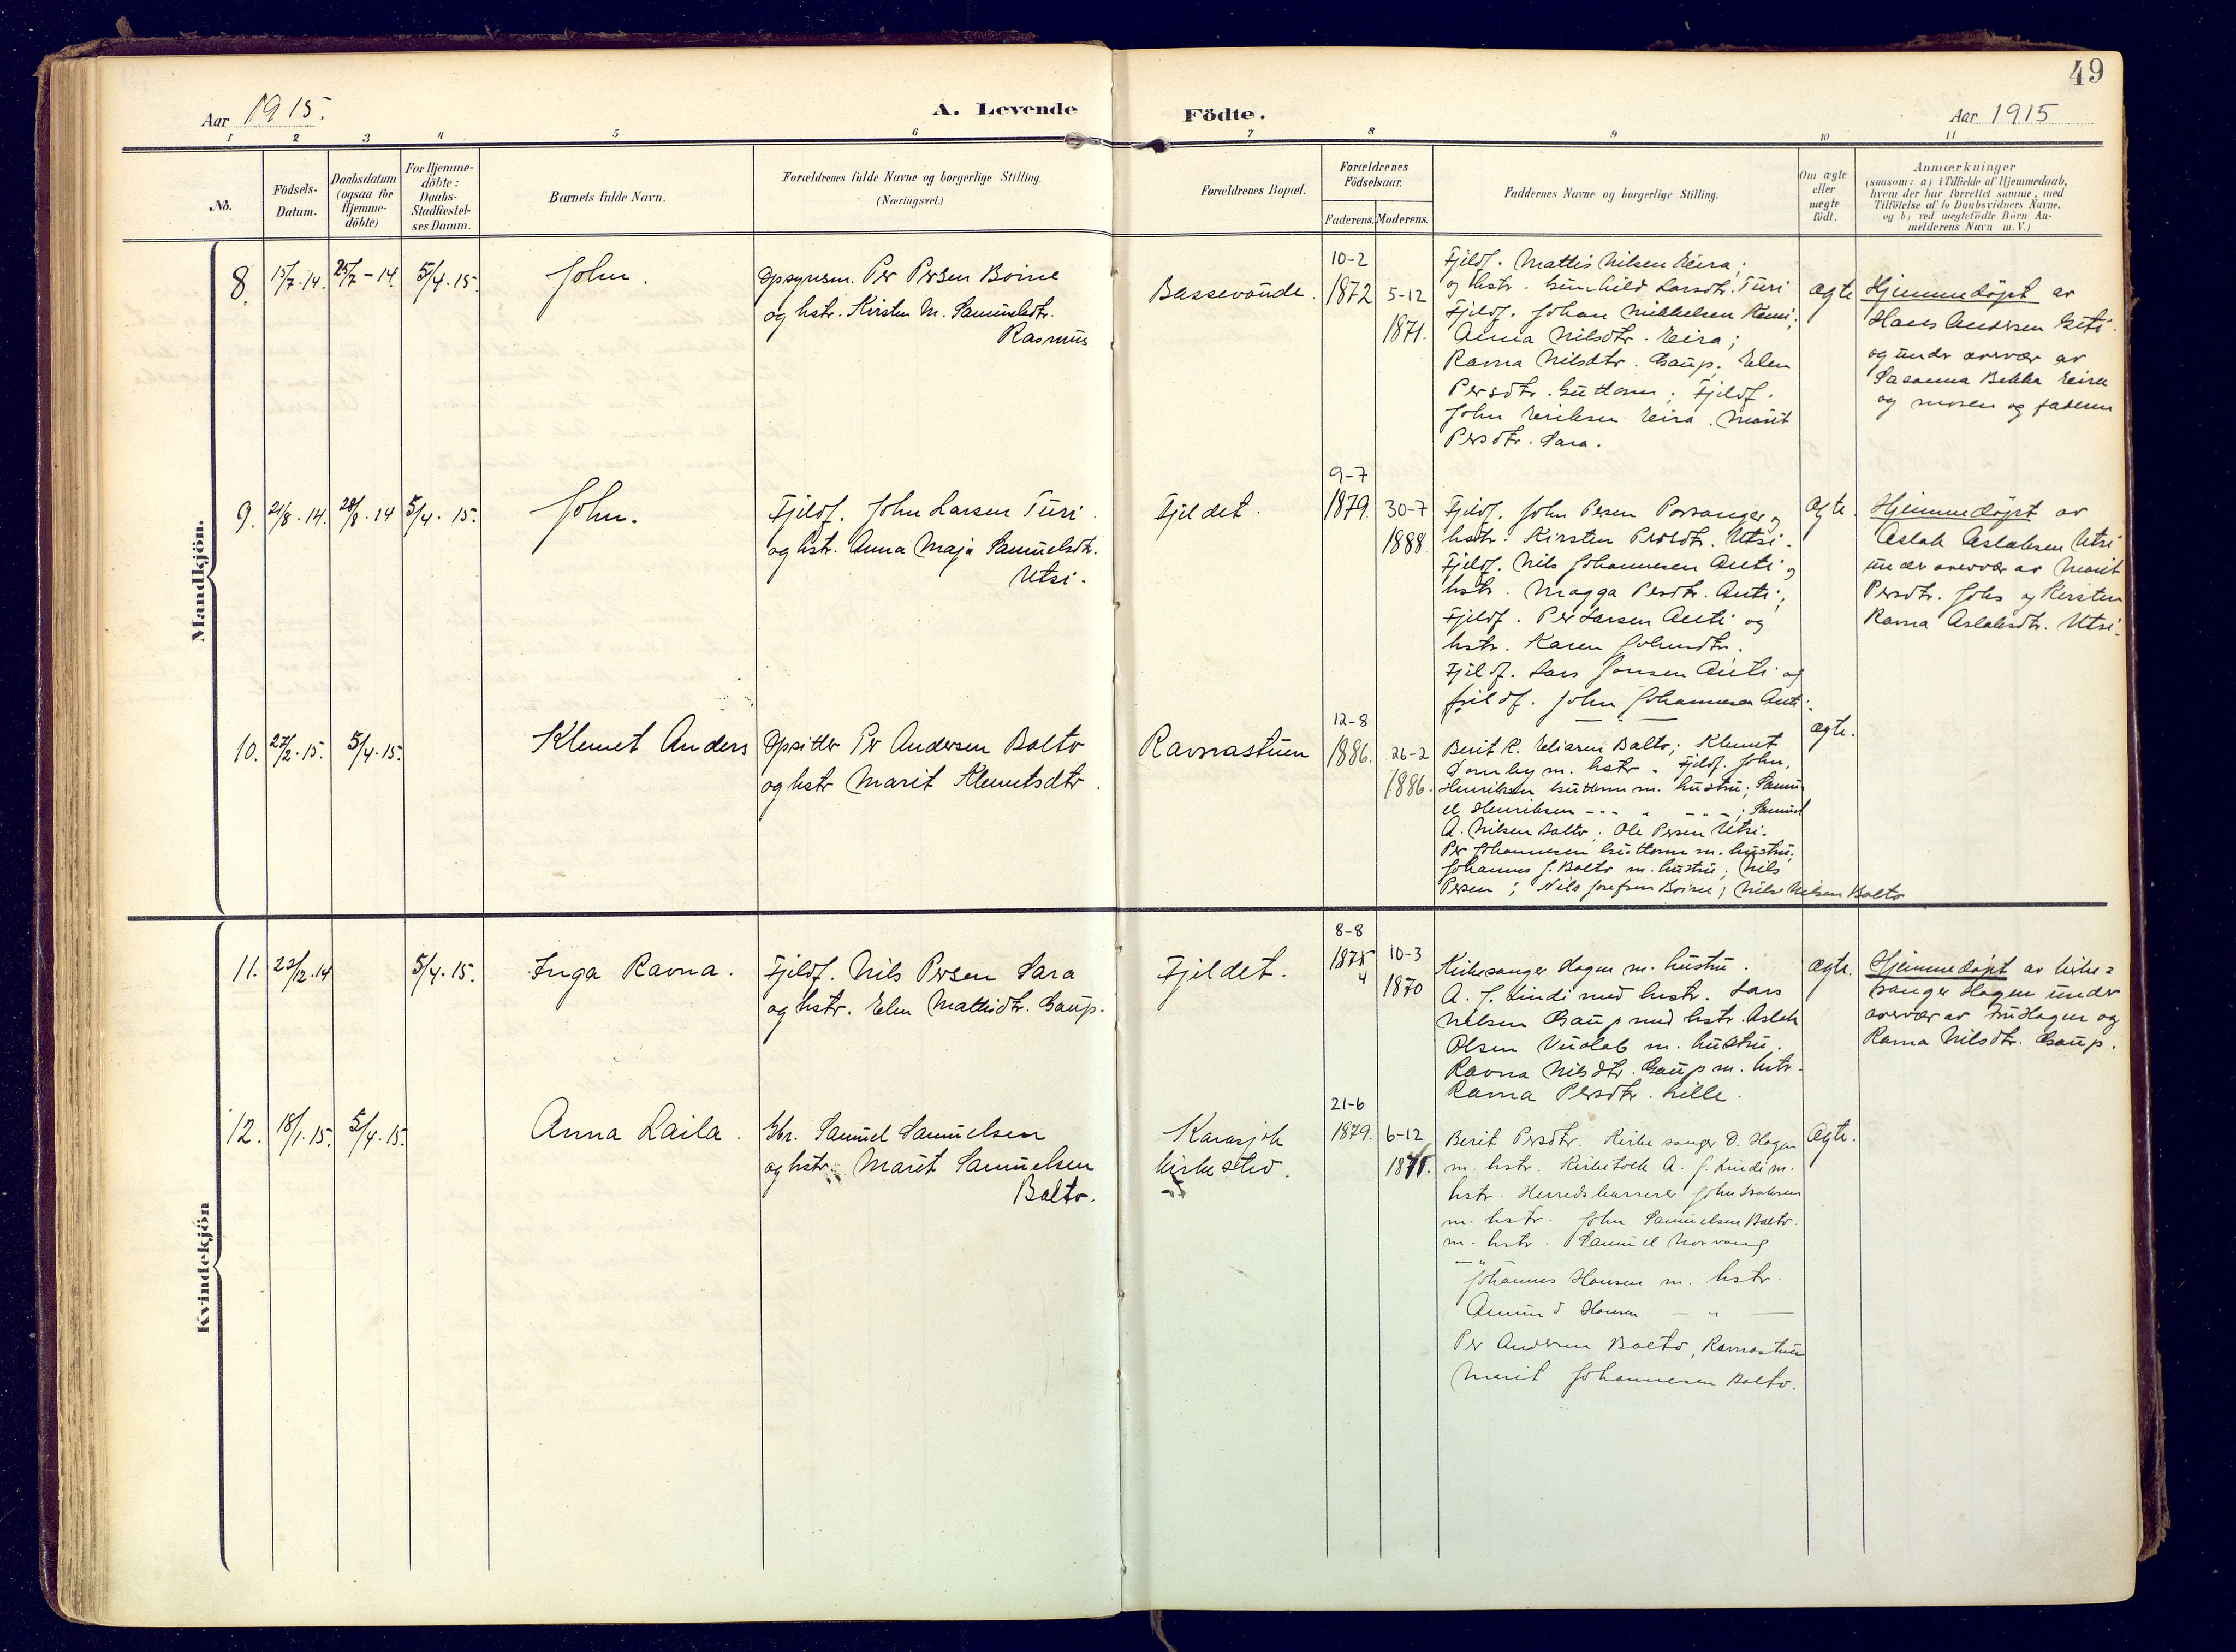 49
Aar 1915.
A. Levende Födte.
Aar 1915
1 2 3 4 5 6 7 8 9 10 11
No.
Födsels-
Datum.
Daabsdatum
(ogsaa for
Hjemme-
döbte)
For Hjemme-
döbte:
Daabs-
Stadfæstel-
ses Datum.
Barnets fulde Navn.
Forældrenes fulde Navne og borgerlige Stilling.
(Næringsvei.)
Forældrenes Bopæl.
Forældrenes
Födselsaar.
Faderens. Moderens.
Faddernes Navne og borgerlige Stilling.
Om ægte
eller
uægte
født.
Anmærkninger
(saasom: a) i Tilfælde af Hjemmedaab,
hvem der har forrettet samme, med
Tilföielse af to Daabsvidners Navne,
og b) ved uægtefödte Börn An-
melderens Navn m. V.)
Mandkjön.
8. 15/7.14. 25/7-14 5/4.15.
John.
Opsynsm. Per Persen Boine
og hstr. Kirsten M. Samuelsdtr.
Rasmus
Bassevoude.
10-2
1872
5-12
1871.
Fjeldf. Mattis Nilsen Eira;
og hstr. Gunhild Larsdtr. Turi
Fjeldf. Johan Mikkelsen
Anna Nilsdtr. Eira;
Ravna Nilsdtr. Gaup; Elen
Persdtr. Guttorm; Fjeldf.
John Eriksen Eira. Marit
Persdtr. Sara.
ægte
Hjemmedøpt av
Hans Andersen
og under overvær av
Sasanna Bekka Eira
og moren og faderen
9. 21/8.14. 28/8.14 5/4.15.
John.
Fjeldf. John Larsen Turi
og hstr. Anna Maja Samuelsdtr.
Utsi.
Fjeldet.
9-7
1879.
30-7
1888
Fjeldf. John Persen Porsanger og
hstr. Kirsten Persdtr. Utsi.
Fjeldf. Nils Johannesen Anti og
hstr. Magga Persdtr. Anti;
Fjeldf. Per Larsen Anti og
hstr. Karen Johnsdtr.
Fjeldf. Lars Jonsen Anti og
fjeldf. John Johannesen Anti.
ægte.
Hjemmedøpt av
Aslak Aslaksen Utsi
under overvær av Marit
Persdtr. Johs og Kirsten
Ravna Aslaksdtr. Utsi.
10. 27/2.15. 5/4.15.
Klemet Anders
Opsitter Per Andersen Balto
og hstr Marit Klemetsdtr.
Ravnastuen
12-8
1886.
26-2
1886.
Berit K. Eliasen Balto; Klemet
Somby m. hstr. Fjeldf. John
Henriksen Guttorm m. hustru; Samu-
el Henriksen --- " ---; Samuel
A. Nilsen Balto. Ole Persen Utsi.
Per Johannesen Guttorm m. hustru;
Johannes J. Balto m. hustru; Nils
Persen; Nils Josefsen Boine; Nils Nilsen Balto
ægte.
Kvindekjön
11. 23/12.14 5/4.15.
Inga Ravna.
Fjeldf. Nils Persen Sara
og hstr. Elen Mattisdtr. Gaup.
Fjeldet.
8-8
1875
4
10-3
1870
Kirkesanger Hagen m. hustru.
A. J. Lindi med hustr. Lars
Nilsen Gaup med hstr. Aslak
Olsen Vuolab m. hustru.
Ravna Nilsdtr. Gaup m. hstr.
Ravna Persdtr. Lille.
ægte.
Hjemmedøpt av kirke=
sanger Hagen under
overvær av Fru Hagen og
Ravna Nilsdtr. Gaup.
12. 18/1.15. 5/4.15.
Anna Laila.
Gbr. Samuel Samuelsen
og hstr. Marit Samuelsen
Balto.
Karasjok
kirkested.
21-6
1879.
6-12
Berit Persdtr. Kirkesanger O. Hagen
m. hstr. Kirketolk A. J. Lindi m.
hstr. Herredskasserer John Isaksen
m. hstr. John Samuelsen Balto
m. hstr. Samuel Norvang
— " —
Johannes Hansen m. hstr.
Amund Hansen — " —
Per Andersen Balto, Ravnastuen
Marit Johannesen Balto.
ægte.